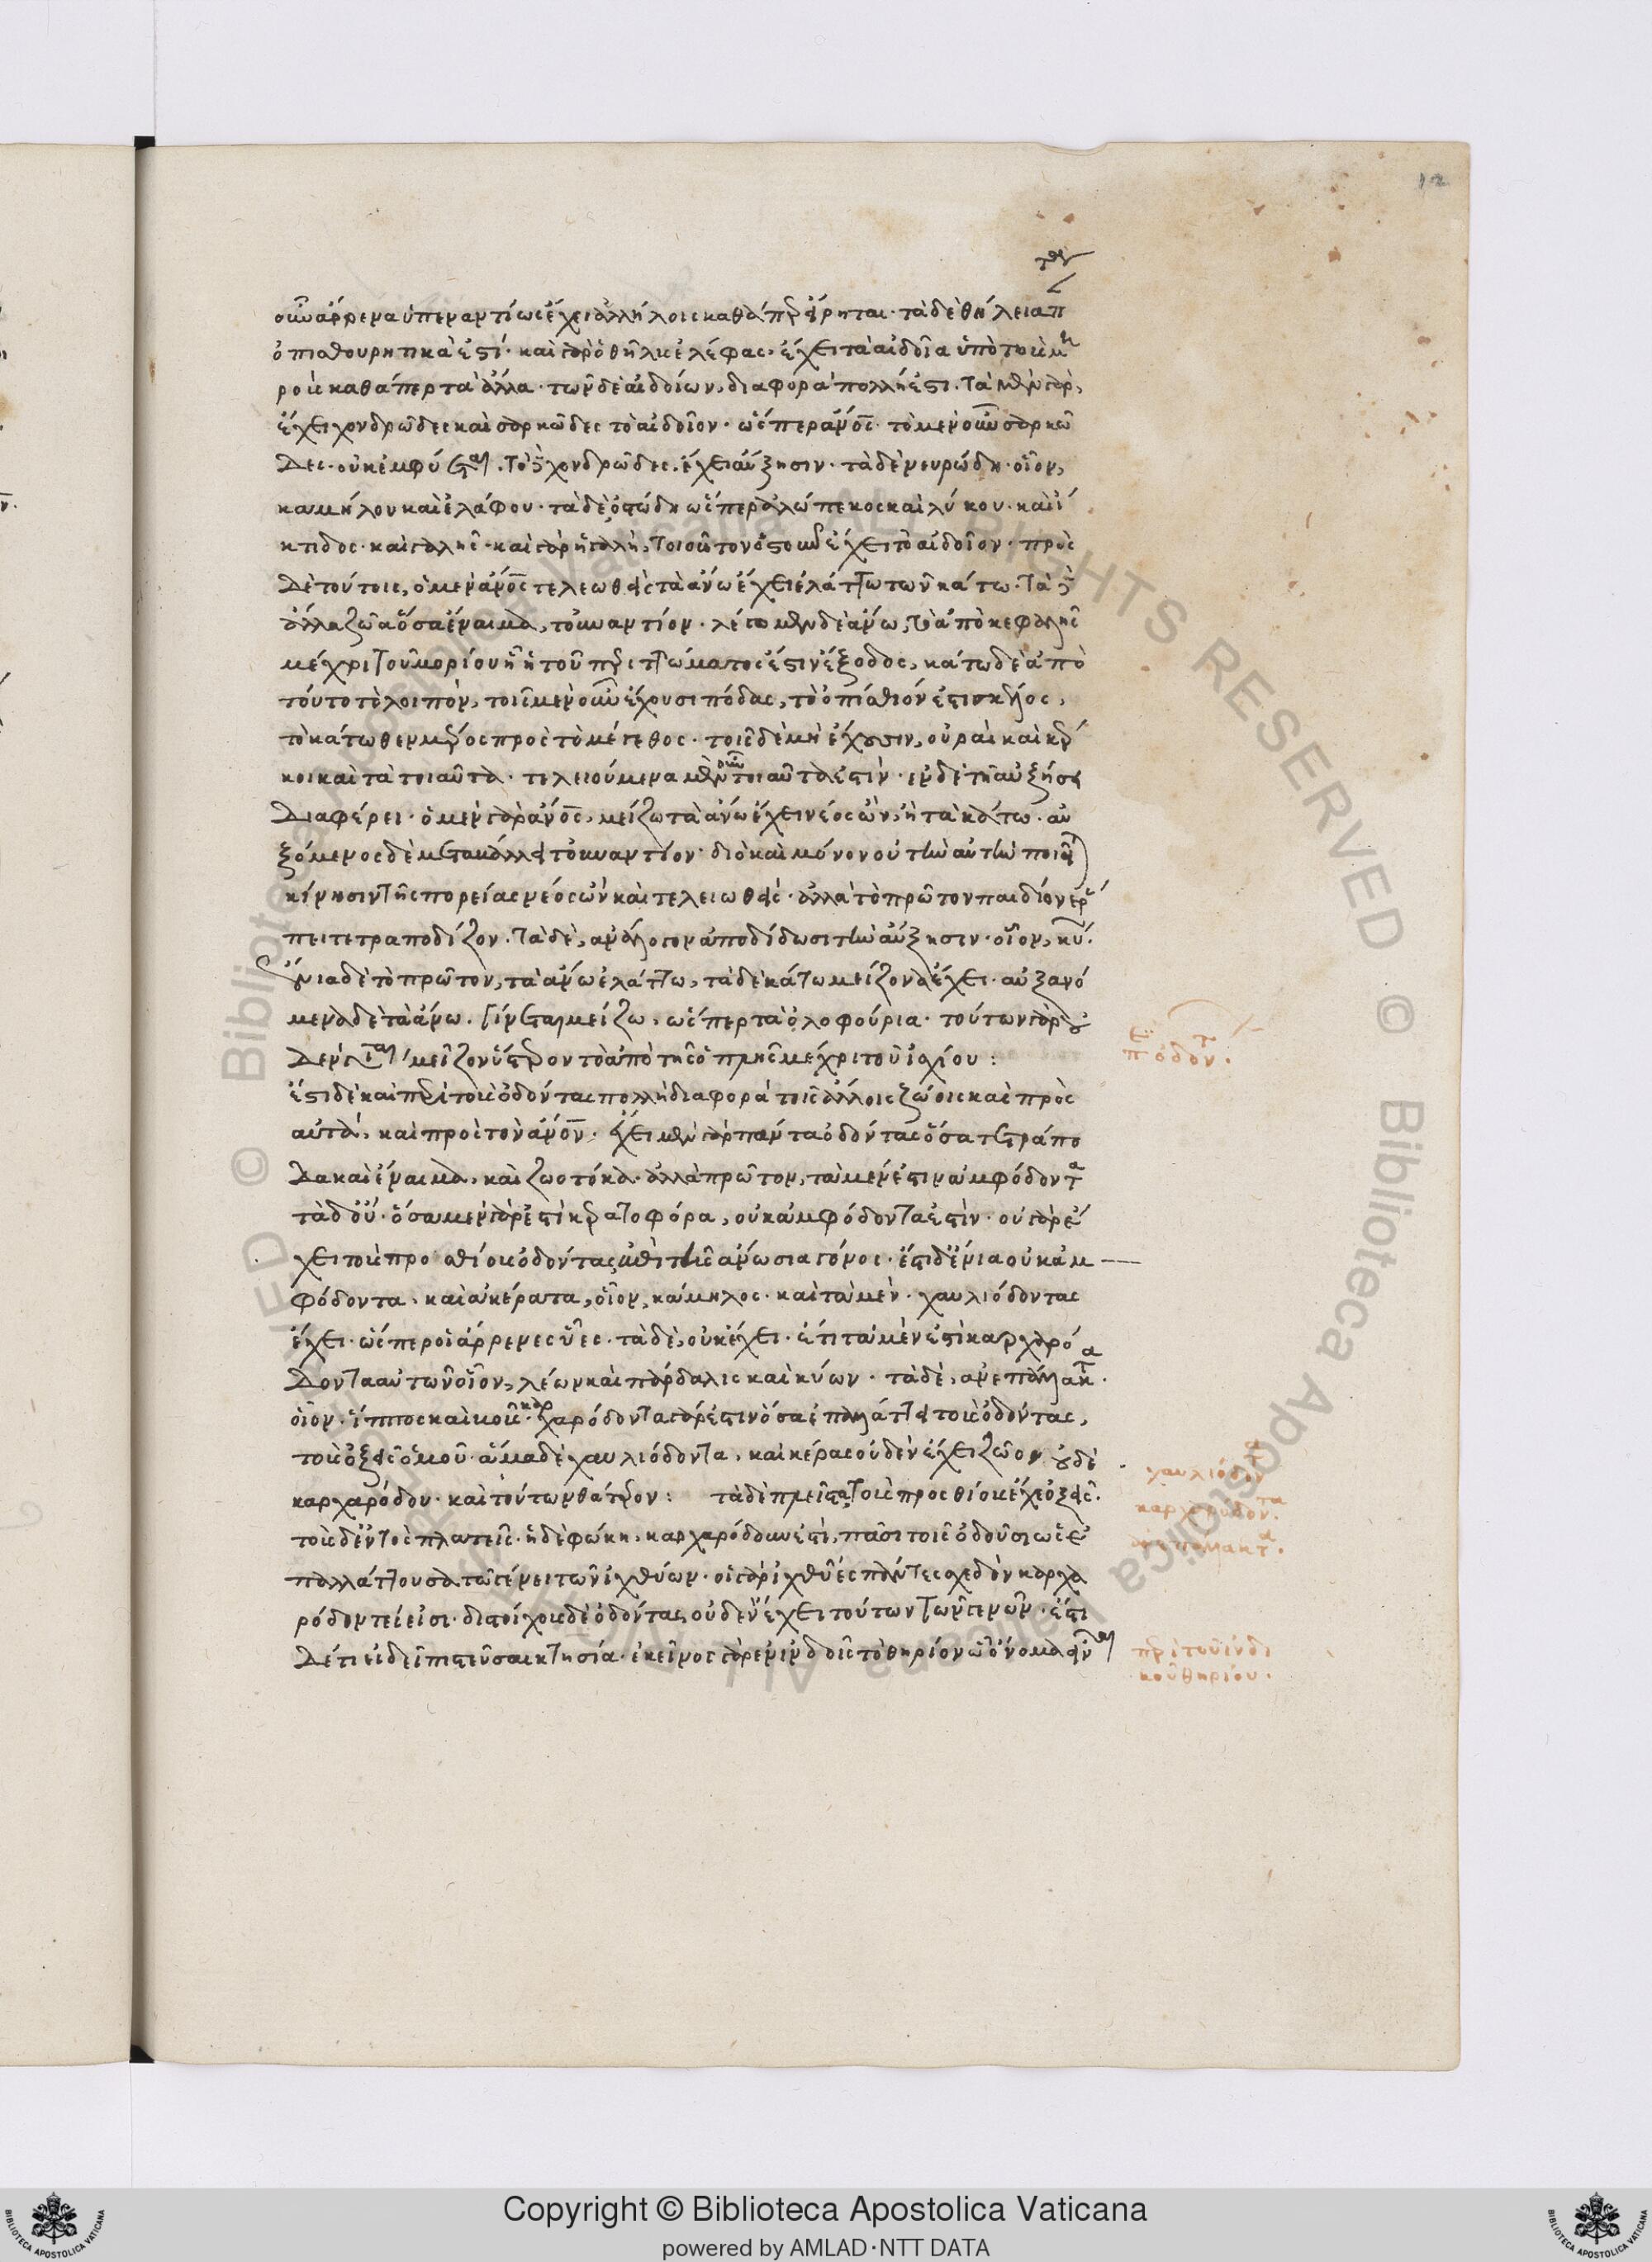 12
οὖν ἄρρενα ὑπεναντίως ἔχει ἀλλήλοις καθάπερ εἴρηται· τὰ δὲ θήλεια π
ὀπισθουρητικὰ ἐστί· καὶ γὰρ ὁ θῆλυς ἐλέφας· ἔχει τὰ αἰδοῖα ὑπὸ τοῖς μη
ροῖς καθάπερ τὰ ἄλλα· τῶν δὲ αἰδοίων, διαφορὰ πολλή ἐστι. τὰ μὲν γὰρ,
ἔχει χονδρώδες καὶ σαρκῶδες τὸ αἰδοῖον· ὥσπερ ἄνος· τὸ μὲν οὖν σαρκῶ
δες· οὐκ ἐμφυσᾶται. τὸ δὲ χονδρῶδες, ἔχει αὔξησιν· τὰ δὲ νευρώδη· οἷον,
καμήλου καὶ ἐλάφου· τὰ δὲ ὀστώδη ὥσπερ ἀλώπεκος καὶ λύκου· καὶ ἴ
κτιδος· καὶ γαλῆς· καὶ γὰρ ἡ γαλῆ, τοιοῦτον ὀστοῦν ἔχει τὸ αἰδοῖον· πρὸς
δὲ τούτοις, ὁ μὲν ἄνος τελεωθεὶς τὰ ἄνω ἔχει ἐλάττω τῶν κάτω. τὰ δὲ
ἄλλα ζῶα ὅσα ἔναιμα, τοὐναντίον· λέγω μὲν δὲ ἄνω, τὸ ἀπὸ κεφαλῆς
μέχρι τοῦ μορίου ἧ ἡ τοῦ περιττώματος ἐστὶν ἔξοδος, κάτω δὲ ἀπὸ
τούτο τὸ λοιπὸν, τοῖς μὲν οὖν ἔχουσι πόδας, τὸ ὀπίσθιόν ἐστι σκέλος,
τὸ κάτωθεν μέρος πρὸς τὸ μέγεθος· τοῖς δὲ μὴ ἔχουσιν, οὐραὶ καὶ κέρ
κοι καὶ τὰ τοιαῦτα· τελειούμενα μὲν οὖν τοιαῦτα ἐστίν· ἐν δὲ τῆ αὐξήσει
διαφέρει· ὁ μὲν γὰρ ἄνος, μείζω τὰ ἄνω ἔχει νέος ὢν, ἢ τὰ κάτω. αὐ
ξόμενος δὲ μεταβάλλει τοὐναντίον· διὸ καὶ μόνον οὐ τὴν αὐτὴν ποιεῖται
κίνησιν τῆς πορείας νέος ὢν καὶ τελειωθείς· ἀλλὰ τὸ πρῶτον παιδίον ἕρ
πει τετραποδίζον. τὰ δὲ, ἀνάλογον ἀποδίδωσι τὴν αὔξησιν· οἷον, κύ.
ἔνια δὲ τὸ πρῶτον, τὰ ἄνω ἐλάττω, τὰ δὲ κάτω μείζονα ἔχει· αὐξανό
μενα δὲ τὰ ἄνω. γίνεται μείζω, ὥσπερ τὰ ὁλοφούρια· τούτων γὰρ οὐ
δὲν γίνεται μεῖζον ὕστερον τὸ ἀπὸ τῆς ὁπλῆς μέχρι τοῦ ἰσχίου:
ἔστι δὲ καὶ περὶ τοὺς ὀδόντας πολλὴ διαφορὰ τοῖς ἄλλοις ζώοις καὶ πρὸς
αὐτά, καὶ πρὸς τὸν ἄνον. ἔχει μὲν γὰρ πάντα ὀδόντας ὅσα τετράπο
δα καὶ ἔναιμα, καὶ ζωοτόκα· ἀλλὰ πρῶτον, τὰ μὲν ἐστιν ἀμφόδοντα
τὰ δ οὔ· ὅσα μὲν γὰρ ἐστὶ κερατοφόρα, οὐκ ἀμφόδοντα ἐστίν· οὐ γὰρ ἔ
χει τοὺς προσθίους ὀδόντας ἐπὶ τῆς ἄνω σιαγόνος· ἔστι δ ἔνια οὐκ ἀμ
φόδοντα, καὶ ἀκέρατα, οἷον, κάμηλος· καὶ τὰ μὲν· χαυλιόδοντας
ἔχει· ὥσπερ οἱ ἄρρενες ὕες· τὰ δὲ, οὐκ ἔχει· ἔτι τὰ μὲν ἐστὶ καρχαρό
δοντα αὐτῶν οἷον, λέων καὶ πάρδαλις καὶ κύων· τὰ δὲ, ἀνεπάλλακτα.
οἷον· ἵππος καὶ βοῦς· καρχαρόδοντα γάρ ἐστιν ὅσα ἐπαλλάττει τοὺς ὀδόντας,
τοὺς ὀξεῖς ὁμοῦ· ἅμα δὲ χαυλιόδοντα, καὶ κέρας οὐδὲν ἔχει ζῶον οὐδὲ
καρχαρόδον· καὶ τούτων θάτερον: τὰ δὲ πλεῖστα τοὺς προσθίους ἔχει ὀξεῖς.
τοὺς δ ἐντὸς πλατεῖς· ἡ δὲ φώκη, καρχαρόδουν ἐστὶ, πᾶσι τοῖς ὀδοῦσι ὡς ἐ
παλλάττουσα τῶ γένει τῶν ἰχθύων· οἱ γὰρ ἰχθῦες πάντες σχεδὸν καρχα
ρόδοντες εἰσι· διστοίχους δὲ ὀδόντας οὐδὲν ἔχει τούτων τῶν γενῶν· ἔστι
δέ τι εἰ δεῖ πιστεῦσαι κτησία· ἐκεῖνος γὰρ ἐν ἰνδοῖς τὸ θηρίον ὧ ὄνομα εἶναι
χαυλιόδοντα
καρχαρόδοντα.
ἀνεπάλλακτα.
περὶ τοῦ ἰνδι
κοῦ θηρίου.
Copyright © Biblioteca Apostolica Vaticana
powered by AMLAD·NTT DATA